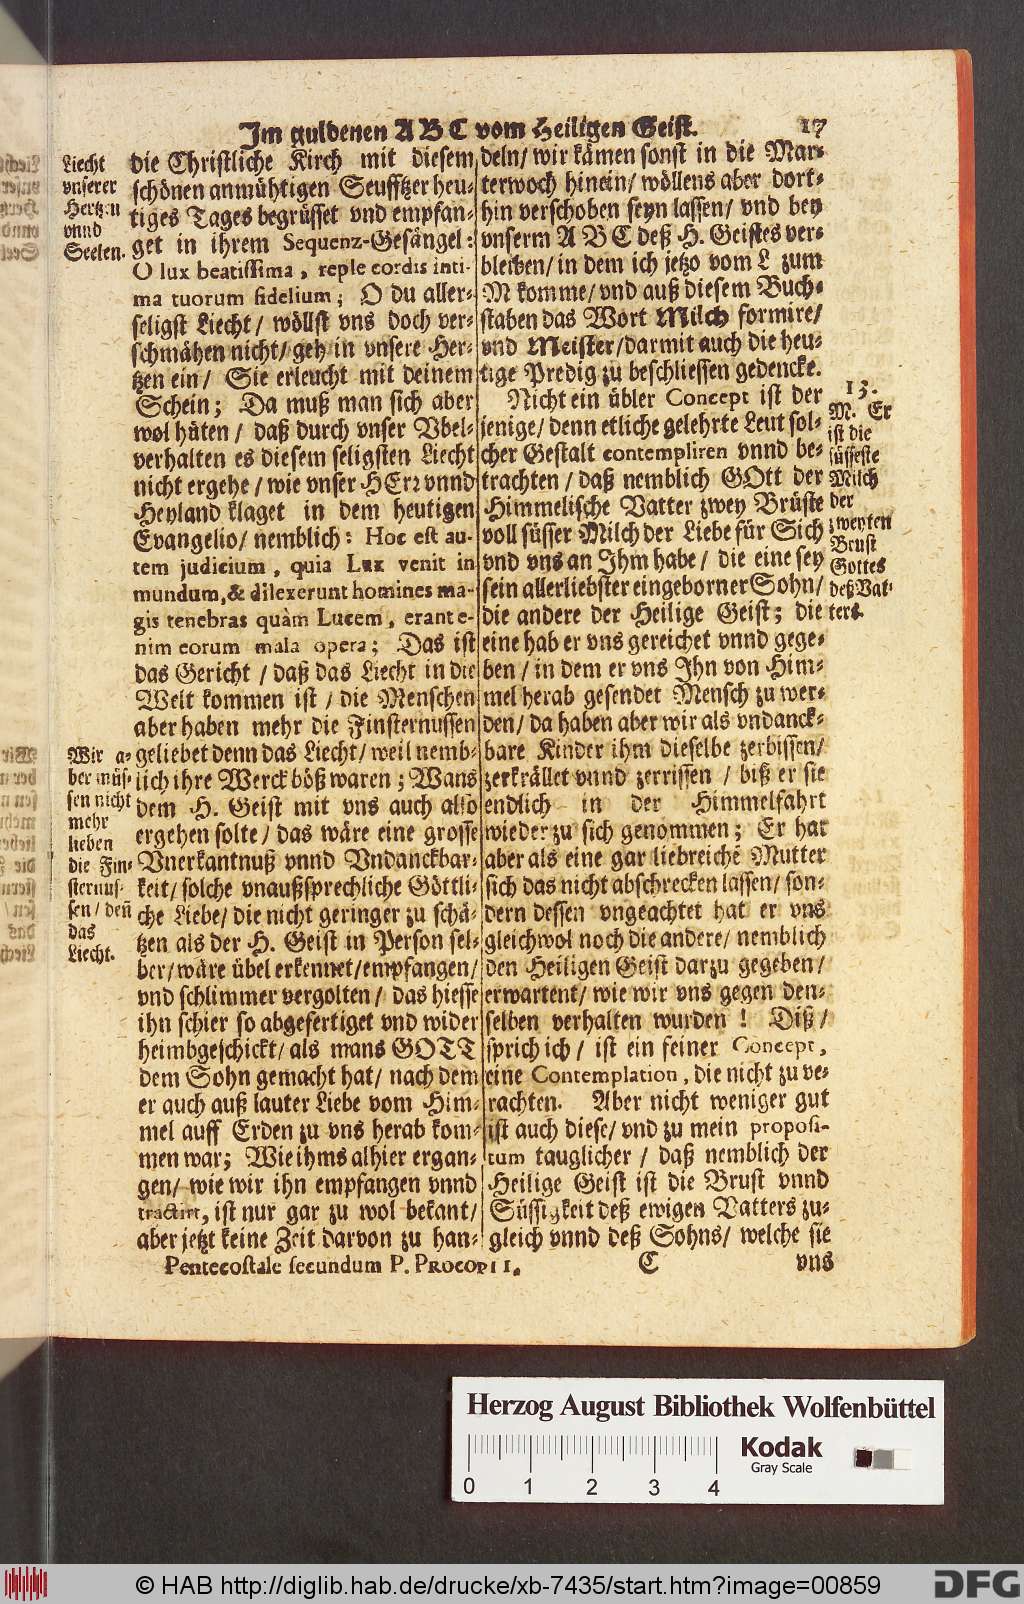 Im guldenen A B C vom Heiligen Geist. 17
Liecht
vnserer
Hertzen
vnnd
Seelen.
die Christliche Kirch mit diesem
schönen anmühtigen Seufftzer heu-
tiges Tages begrüsset vnd empfan-
get in ihrem Sequenz-Gesängel:
O lux beatissima, reple cordis inti-
ma tuorum fidelium; O du aller-
seligst Liecht/ wöllst vns doch ver-
schmähen nicht/ geh in vnsere Her-
tzen ein/ Sie erleucht mit deinem
Schein; Da muß man sich aber
wol hüten/ daß durch vnser Vbel-
verhalten es diesem seligsten Liecht
nicht ergehe/ wie vnser HErr vnnd
Heyland klaget in dem heutigen
Evangelio/ nemblich: Hoc est au-
tem judicium, quia Lux venit in
mundum, & dilexerunt homines ma-
gis tenebras quàm Lucem, erant e-
nim eorum mala opera; Das ist
das Gericht/ daß das Liecht in die
Welt kommen ist/ die Menschen
aber haben mehr die Finsternussen
geliebet denn das Liecht/ weil nemb-
lich ihre Werck böß waren; Wans
dem H. Geist mit vns auch also
ergehen solte/ das wäre eine grosse
Vnerkantnuß vnnd Vndanckbar-
keit/ solche vnaußsprechliche Göttli-
che Liebe/ die nicht geringer zu schä-
tzen als der H. Geist in Person sel-
ber/ wäre übel erkennet/ empfangen/
vnd schlimmer vergolten/ das hiesse
ihn schier so abgefertiget vnd wider
heimbgeschickt/ als mans GOTT
dem Sohn gemacht hat/ nach dem
er auch auß lauter Liebe vom Him-
mel auff Erden zu vns herab kom-
men war; Wie ihms alhier ergan-
gen/ wie wir ihn empfangen vnnd
tractirt, ist nur gar zu wol bekant/
aber jetzt keine Zeit darvon zu han-
Wir a-
ber müs-
sen nicht
mehr
lieben
die Fin-
sternus-
sen/ deñ
das
Liecht.
deln/ wir kämen sonst in die Mar-
terwoch hinein/ wöllens aber dort-
hin verschoben seyn lassen/ vnd bey
vnserm A B C deß H. Geistes ver-
bleiben/ in dem ich jetzo vom L zum
M komme/ vnd auß diesem Buch-
staben das Wort Milch formire/
vnd Meister/ darmit auch die heu-
tige Predig zu beschliessen gedencke.
Nicht ein übler Concept ist der
jenige/ denn etliche gelehrte Leut sol-
cher Gestalt contempliren vnnd be-
trachten/ daß nemblich GOtt der
Himmelische Vatter zwey Brüste
voll süsser Milch der Liebe für Sich
vnd vns an Ihm habe/ die eine sey
sein allerliebster eingeborner Sohn/
die andere der Heilige Geist; die
eine hab er vns gereichet vnnd gege-
ben/ in dem er vns Ihn von Him-
mel herab gesendet Mensch zu wer-
den/ da haben aber wir als vndanck-
bare Kinder ihm dieselbe zerbissen/
zerkrället vnnd zerrissen/ biß er sie
endlich in der Himmelfahrt
wieder zu sich genommen; Er hat
aber als eine gar liebreichē Mutter
sich das nicht abschrecken lassen/ son-
dern dessen vngeachtet hat er vns
gleichwol noch die andere/ nemblich
den Heiligen Geist darzu gegeben/
erwartent/ wie wir vns gegen den-
selben verhalten wurden! Diß/
sprich ich/ ist ein feiner Concept,
eine Contemplation, die nicht zu ve-
rachten. Aber nicht weniger gut
ist auch diese/ vnd zu mein proposi-
tum tauglicher/ daß nemblich der
Heilige Geist ist die Brust vnnd
Süssigkeit deß ewigen Vatters zu-
gleich vnnd deß Sohns/ welche sie
13.
M. Er
ist die
süsseste
Milch
der
zweyten
Brust
Gottes
deß Vat-
ters.
Pentecostale secundum P. PROCOPII. C vns
Herzog August Bibliothek Wolfenbüttel
Kodak
Gray Scale
0 1 2 3 4
© HAB http://diglib.hab.de/drucke/xb-7435/start.htm?image=00859
DFG